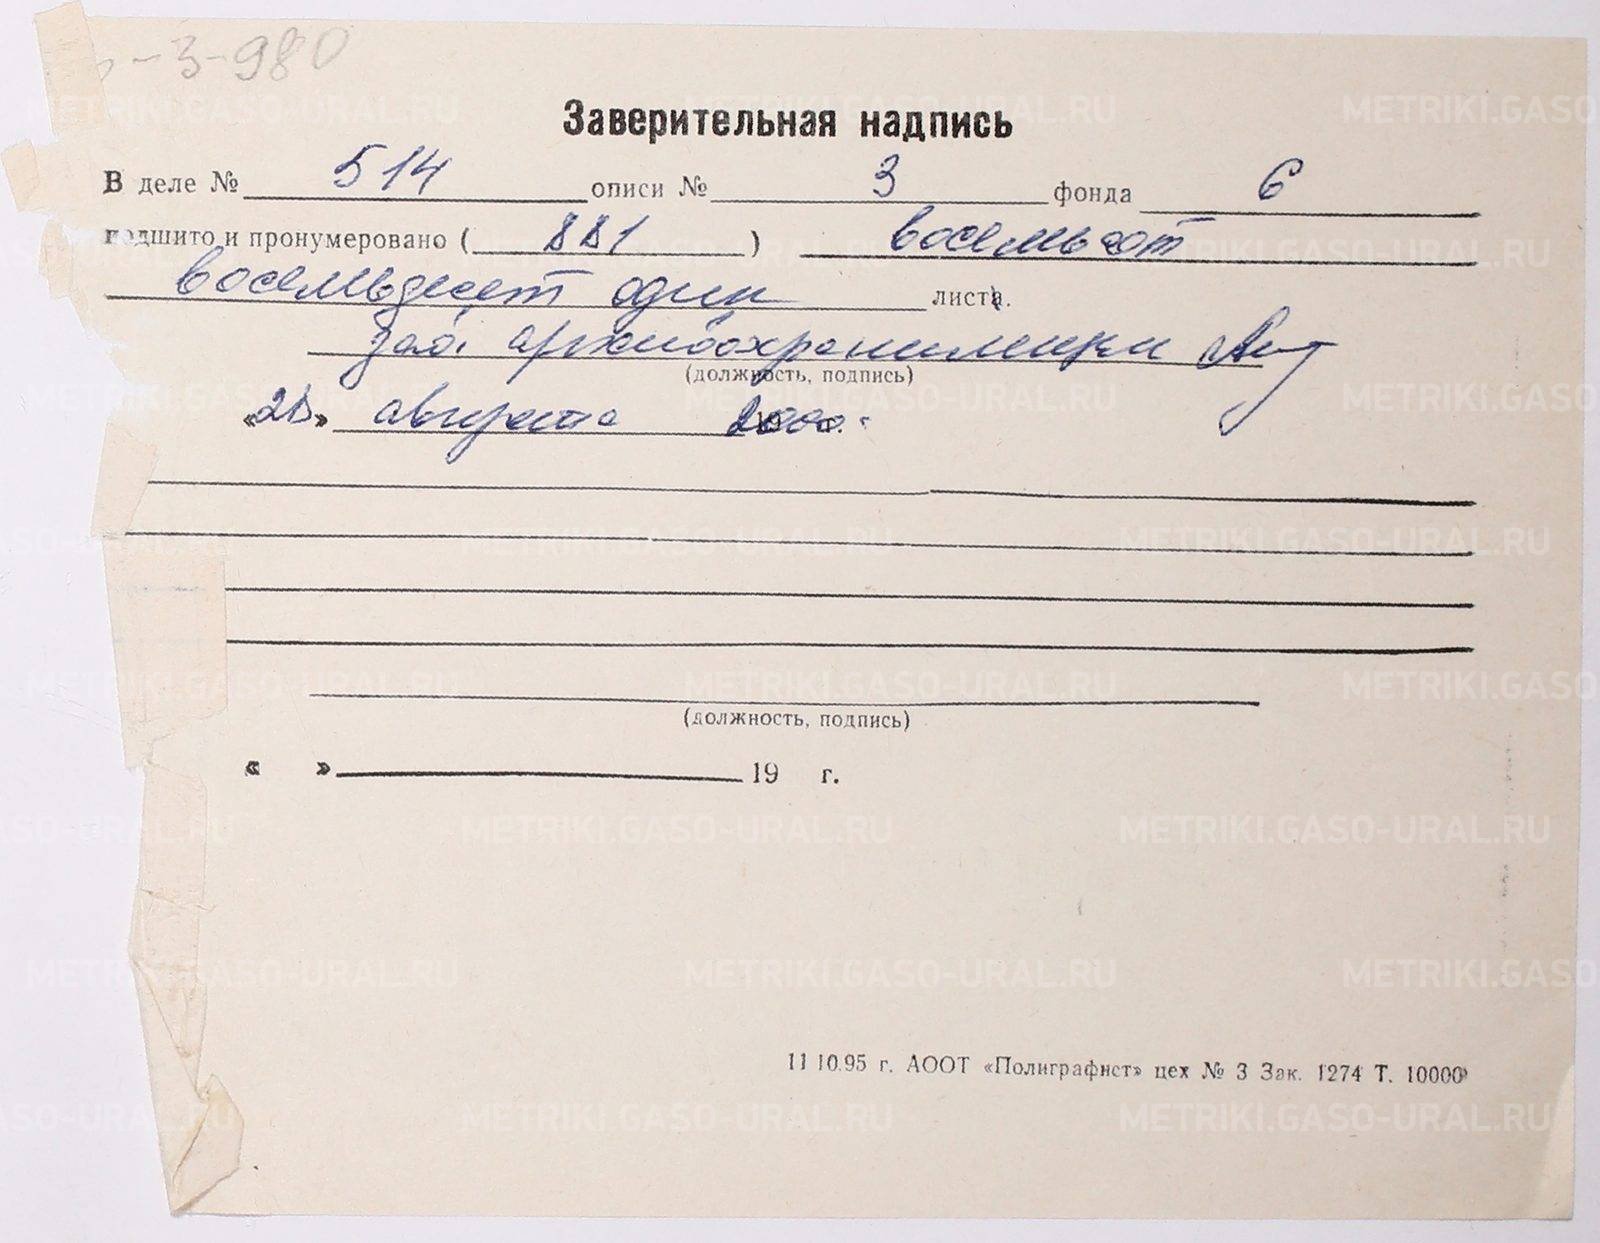 -3-980
Заверительная надпись
В деле № 514 описи № 3 фонда 6
подшито и пронумеровано ( 881 ) восемьсот
восемьдесят один листа.
зав. архивохранилищем
(должность, подпись)
«28» августа 2000 г.
(должность, подпись)
« » 19 г.
11 10.95 г. АООТ «Полиграфист» цех № 3 Зак. 1274 Т. 10000
METRIKI.GASO-URAL.RU